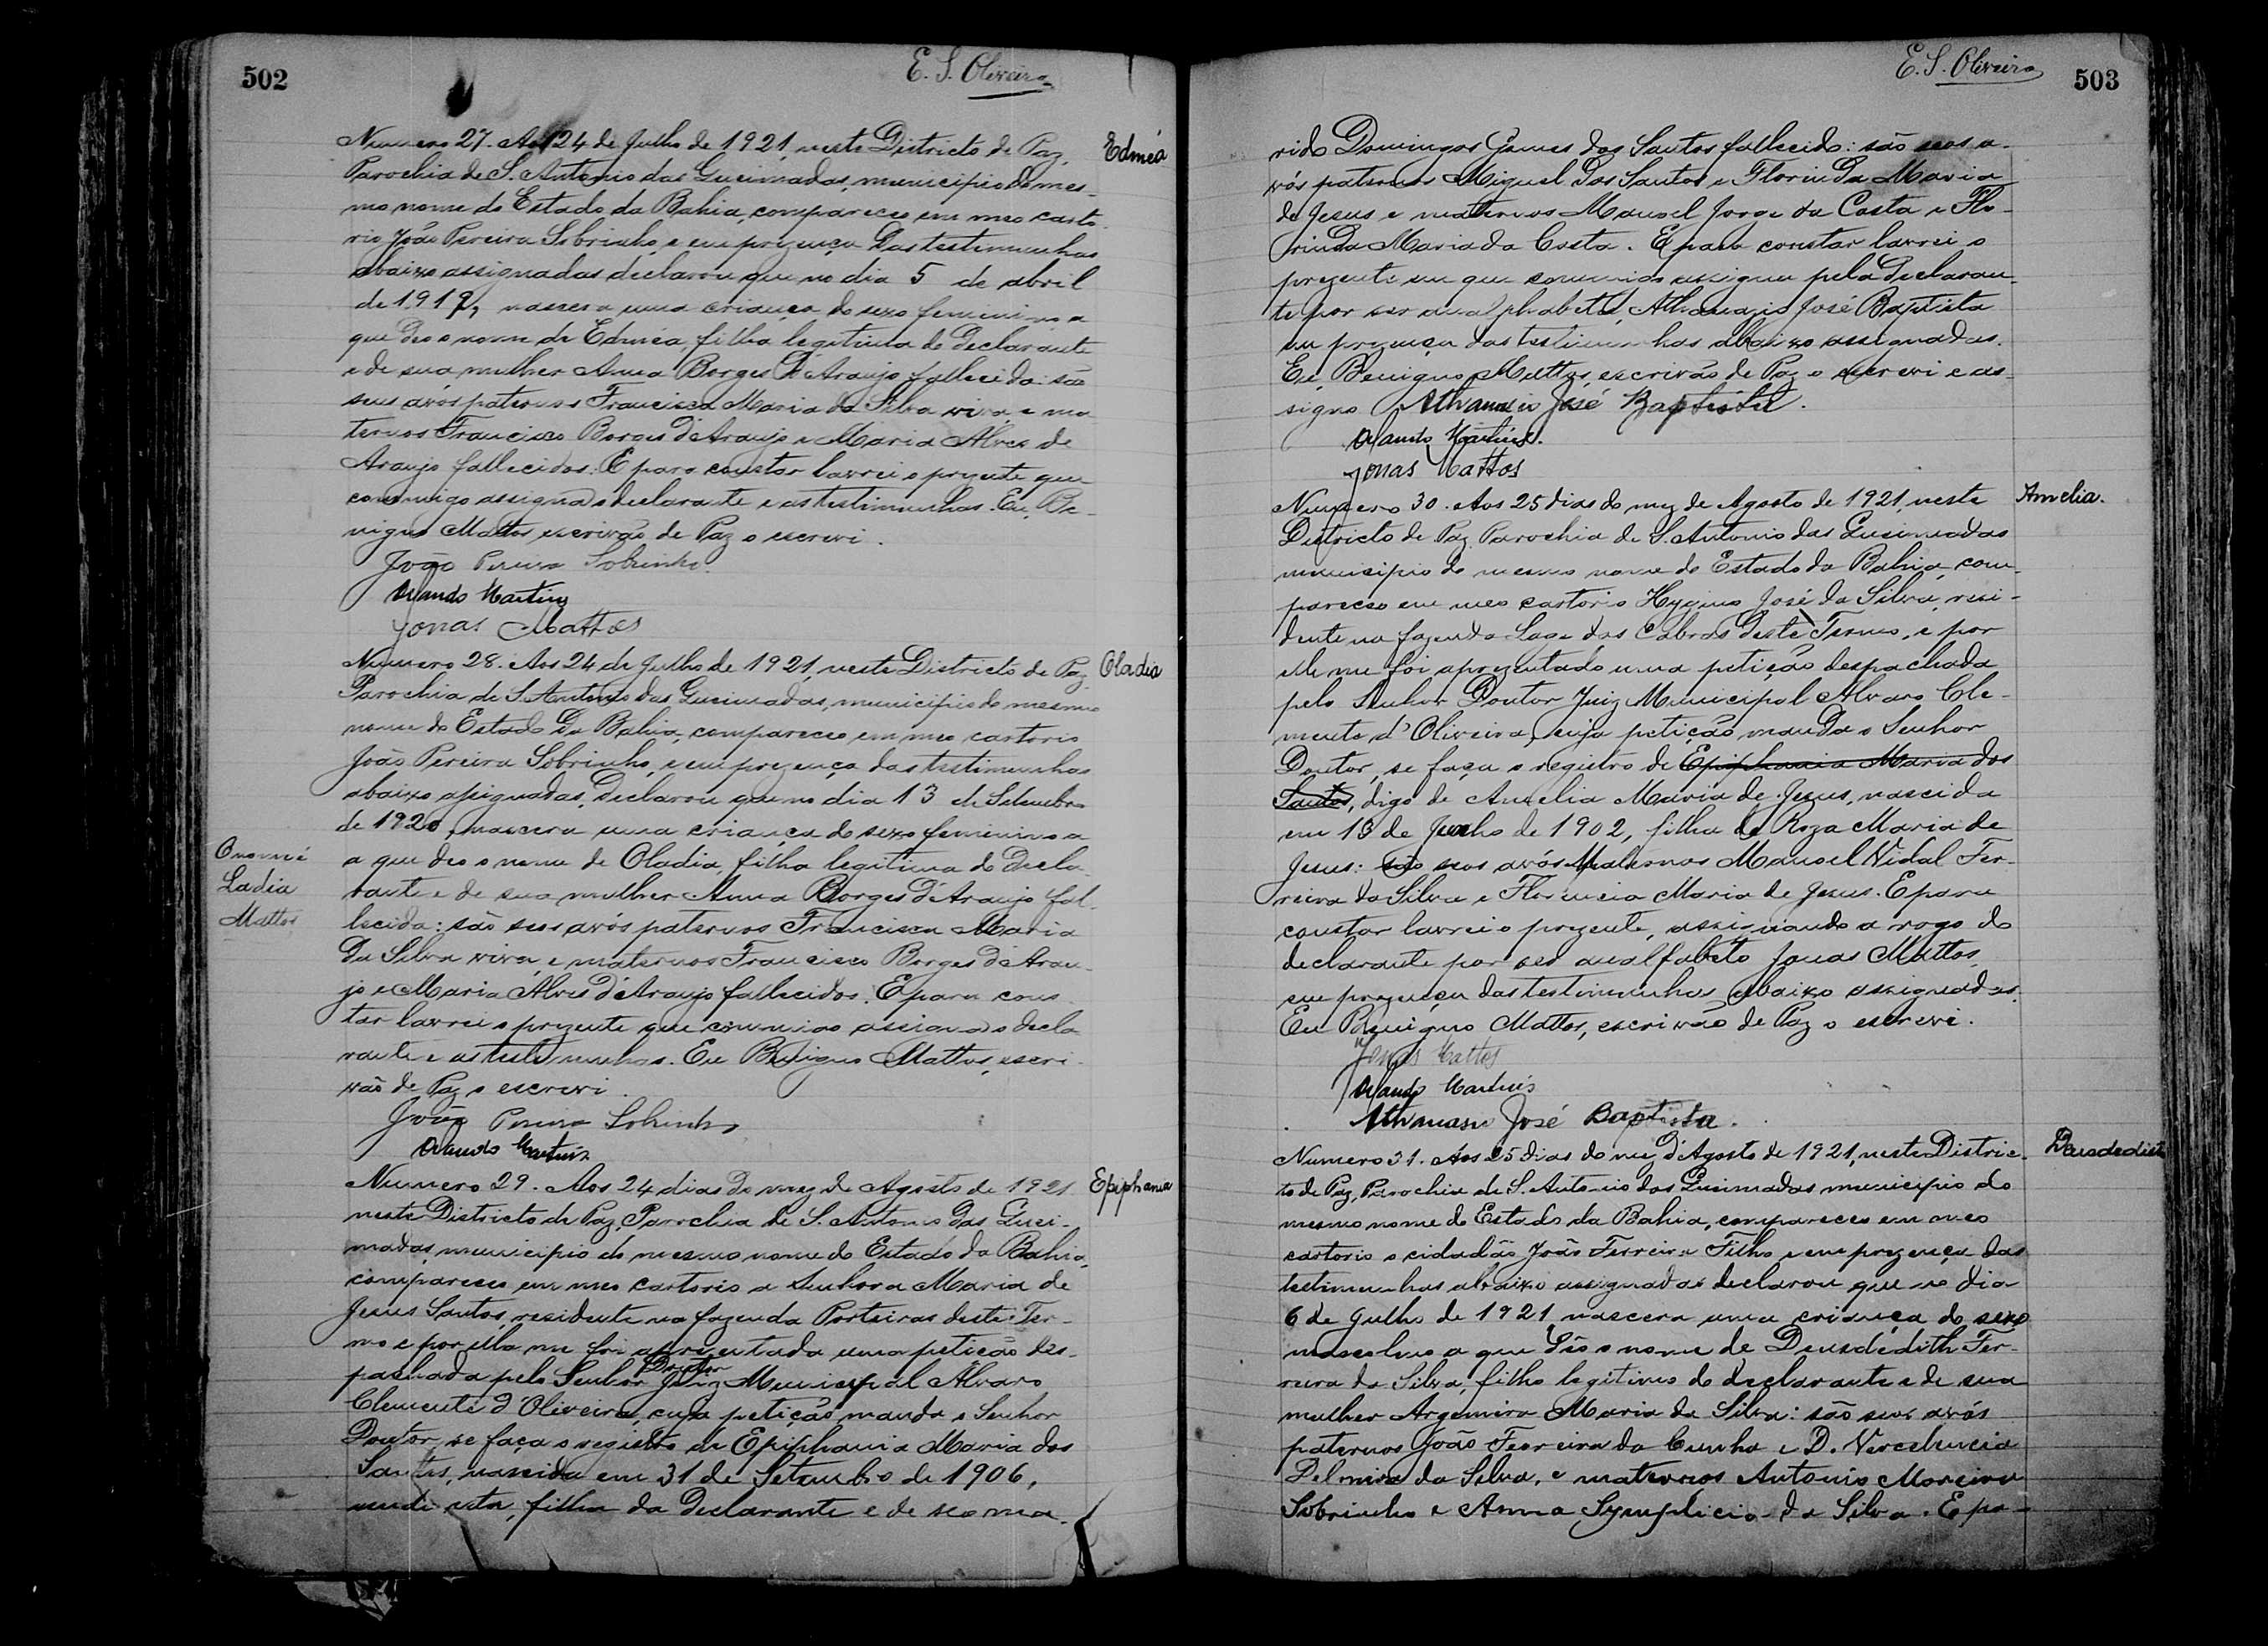 502
E. S. Oliveira
Numero 27. Aos 24 de Julho de 1921, neste Districto de Paz,
Edméa
Parochia de S. Antonio das Queimadas, municipio do mes-
mo nome do Estado da Bahia, compareceo em meo carto-
rio João Pereira Sobrinho, e em prezença das testimunhas
abaixo assignadas declarou que no dia 5 de abril
de 191 nascera uma criança do sexo feminino a
que deo o nome de Edméa, filha legitima do declarante
e de sua mulher Anna Borges d'Araujo fallecida: são
seus avós paternos Francisca Maria da Silva viva e ma-
ternos Francisco Borges d'Araujo e Maria Alves de
Araujo fallecidos. E para constar lavrei o prezente que
commigo assigna o declarante e as testimunhas. Eu, Be-
nigno Mattos, escrivão de Paz o escrevi.
João Pereira Sobrinho
Orlando Martins
Jonas Mattos
Numero 28. Aos 24 de Julho de 1921, neste Districto de Paz
Oladia
Parochia de S. Antonio das Queimadas, municipio do mesmo
nome do Estado da Bahia, compareceo em meo cartorio
João Pereira Sobrinho, e em prezença das testimunhas
abaixo assignadas, declarou que no dia 13 de Setembro
de 1920, nascera uma criança do sexo feminino a
a que deo o nome de Oladia, filha legitima do decla-
rante e de sua mulher Anna Borges d'Araujo fal-
lecida: são seos avós paternos Francisca Maria
da Silva viva, e maternos Francisco Borges d'Arau-
jo e Maria Alves d'Araujo fallecidos. E para cons-
tar lavrei o prezente que commigo assigna o decla-
rante e as testimunhas. Eu Benigno Mattos, escri-
vão de Paz o escrevi.
O nome é
Ladia
Mattos
João Pereira Sobrinho
Orlando Martins
Numero 29. Aos 24 dias do mez de Agosto de 1921
Epiphania
neste Districto de Paz, Parochia de S. Antonio das Quei-
madas, municipio do mesmo nome do Estado da Bahia,
compareceo em meo cartorio a Senhora Maria de
Jesus Santos, residente na fazenda Porteiras deste Ter-
mo e por ella me foi aprezentada uma petição des-
pachada pelo Senhor Doutor Juiz Municipal Alvaro
Clemente d'Oliveira, cuja petição manda o Senhor
Doutor, se faça o registro de Epiphania Maria dos
Santos, nascida em 31 de Setembro de 1906,
filha da Declarante e de seo ma-
503
E. S. Oliveira
rido Domingos Gomes dos Santos fallecido: são seos a-
vós paternos Miguel dos Santos e Florinda Maria
de Jesus e maternos Manoel Jorge da Costa e Flo-
rinda Maria da Costa. E para constar lavrei o
prezente em que commigo assigna pela Declaran-
te por ser analphabeta, Athanazio José Baptista
em prezença das testimunhas abaixo assignadas.
Eu, Benigno Mattos, escrivão de Paz o escrevi e as-
signo Athanazio José Baptista.
Orlando Martins.
Jonas Mattos
Numero 30. Aos 25 dias do mez de Agosto de 1921, neste
Amelia.
Districto de Paz, Parochia de S. Antonio das Queimadas
municipio do mesmo nome do Estado da Bahia, com-
pareceo em meo cartorio Hygino José da Silva, resi-
dente na fazenda Lage das Cabras deste Termo, e por
elle me foi aprezentado uma petição despachada
pelo Senhor Doutor Juiz Municipal Alvaro Cle-
mente d'Oliveira, cuja petição manda o Senhor
Doutor, se faça o registro de Epiphania Maria dos
Santos, digo de Amelia Maria de Jesus, nascida
em 13 de Junho de 1902, filha de Roza Maria de
Jesus: são seos avós Maternos Manoel Vidal Fer-
reira da Silva e Florencia Maria de Jesus. E para
constar lavrei o prezente, assignando a rogo do
declarante por ser analfabeto Jonas Mattos,
em prezença das testimunhas abaixo assignadas.
Eu Benigno Mattos, escrivão de Paz o escrevi.
Jonas Mattos
Orlando Martins
Athanasio José Baptista.
Numero 31. Aos 25 dias do mez d'Agosto de 1921, neste Distric-
Deusdedith
to de Paz, Parochia de S. Antonio das Queimadas municipio do
mesmo nome do Estado da Bahia, compareceo em meo
cartorio o cidadão João Ferreira Filho e em prezença das
testimunhas abaixo assignadas declarou que no dia
6 de Julho de 1921, nascera uma criança do sexo
masculino a que deo o nome de Deusdedith Fer-
reira da Silva, filho legitimo do declarante e de sua
mulher Argemira Maria da Silva: são seos avós
paternos João Ferreira da Cunha e D.
da Silva, e maternos Antonio Moreira
Sobrinho e Anna Symplicia da Silva. E pa-